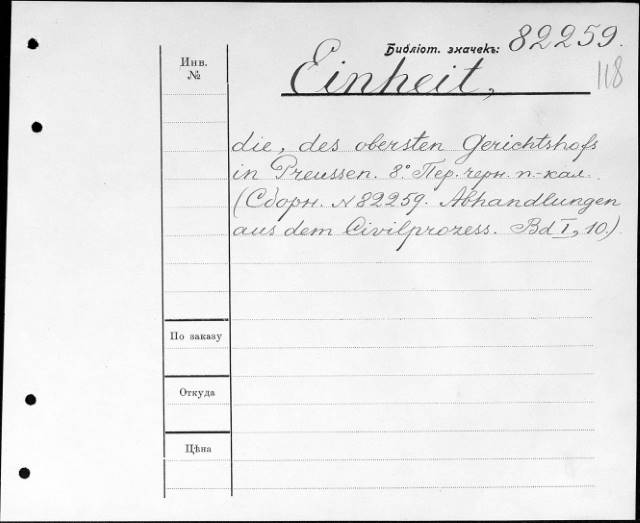 Библіот. значекъ: 82259.
118
Инв.
№
Einheit,
die, des obersten Gerichtshofs
in Preussen. 8° Пер. черн. п-кал.
(Сборн. № 82259. Abhandlungen
aus dem Civilprozess. Bd I, 10.)
По заказу
Откуда
Цѣна